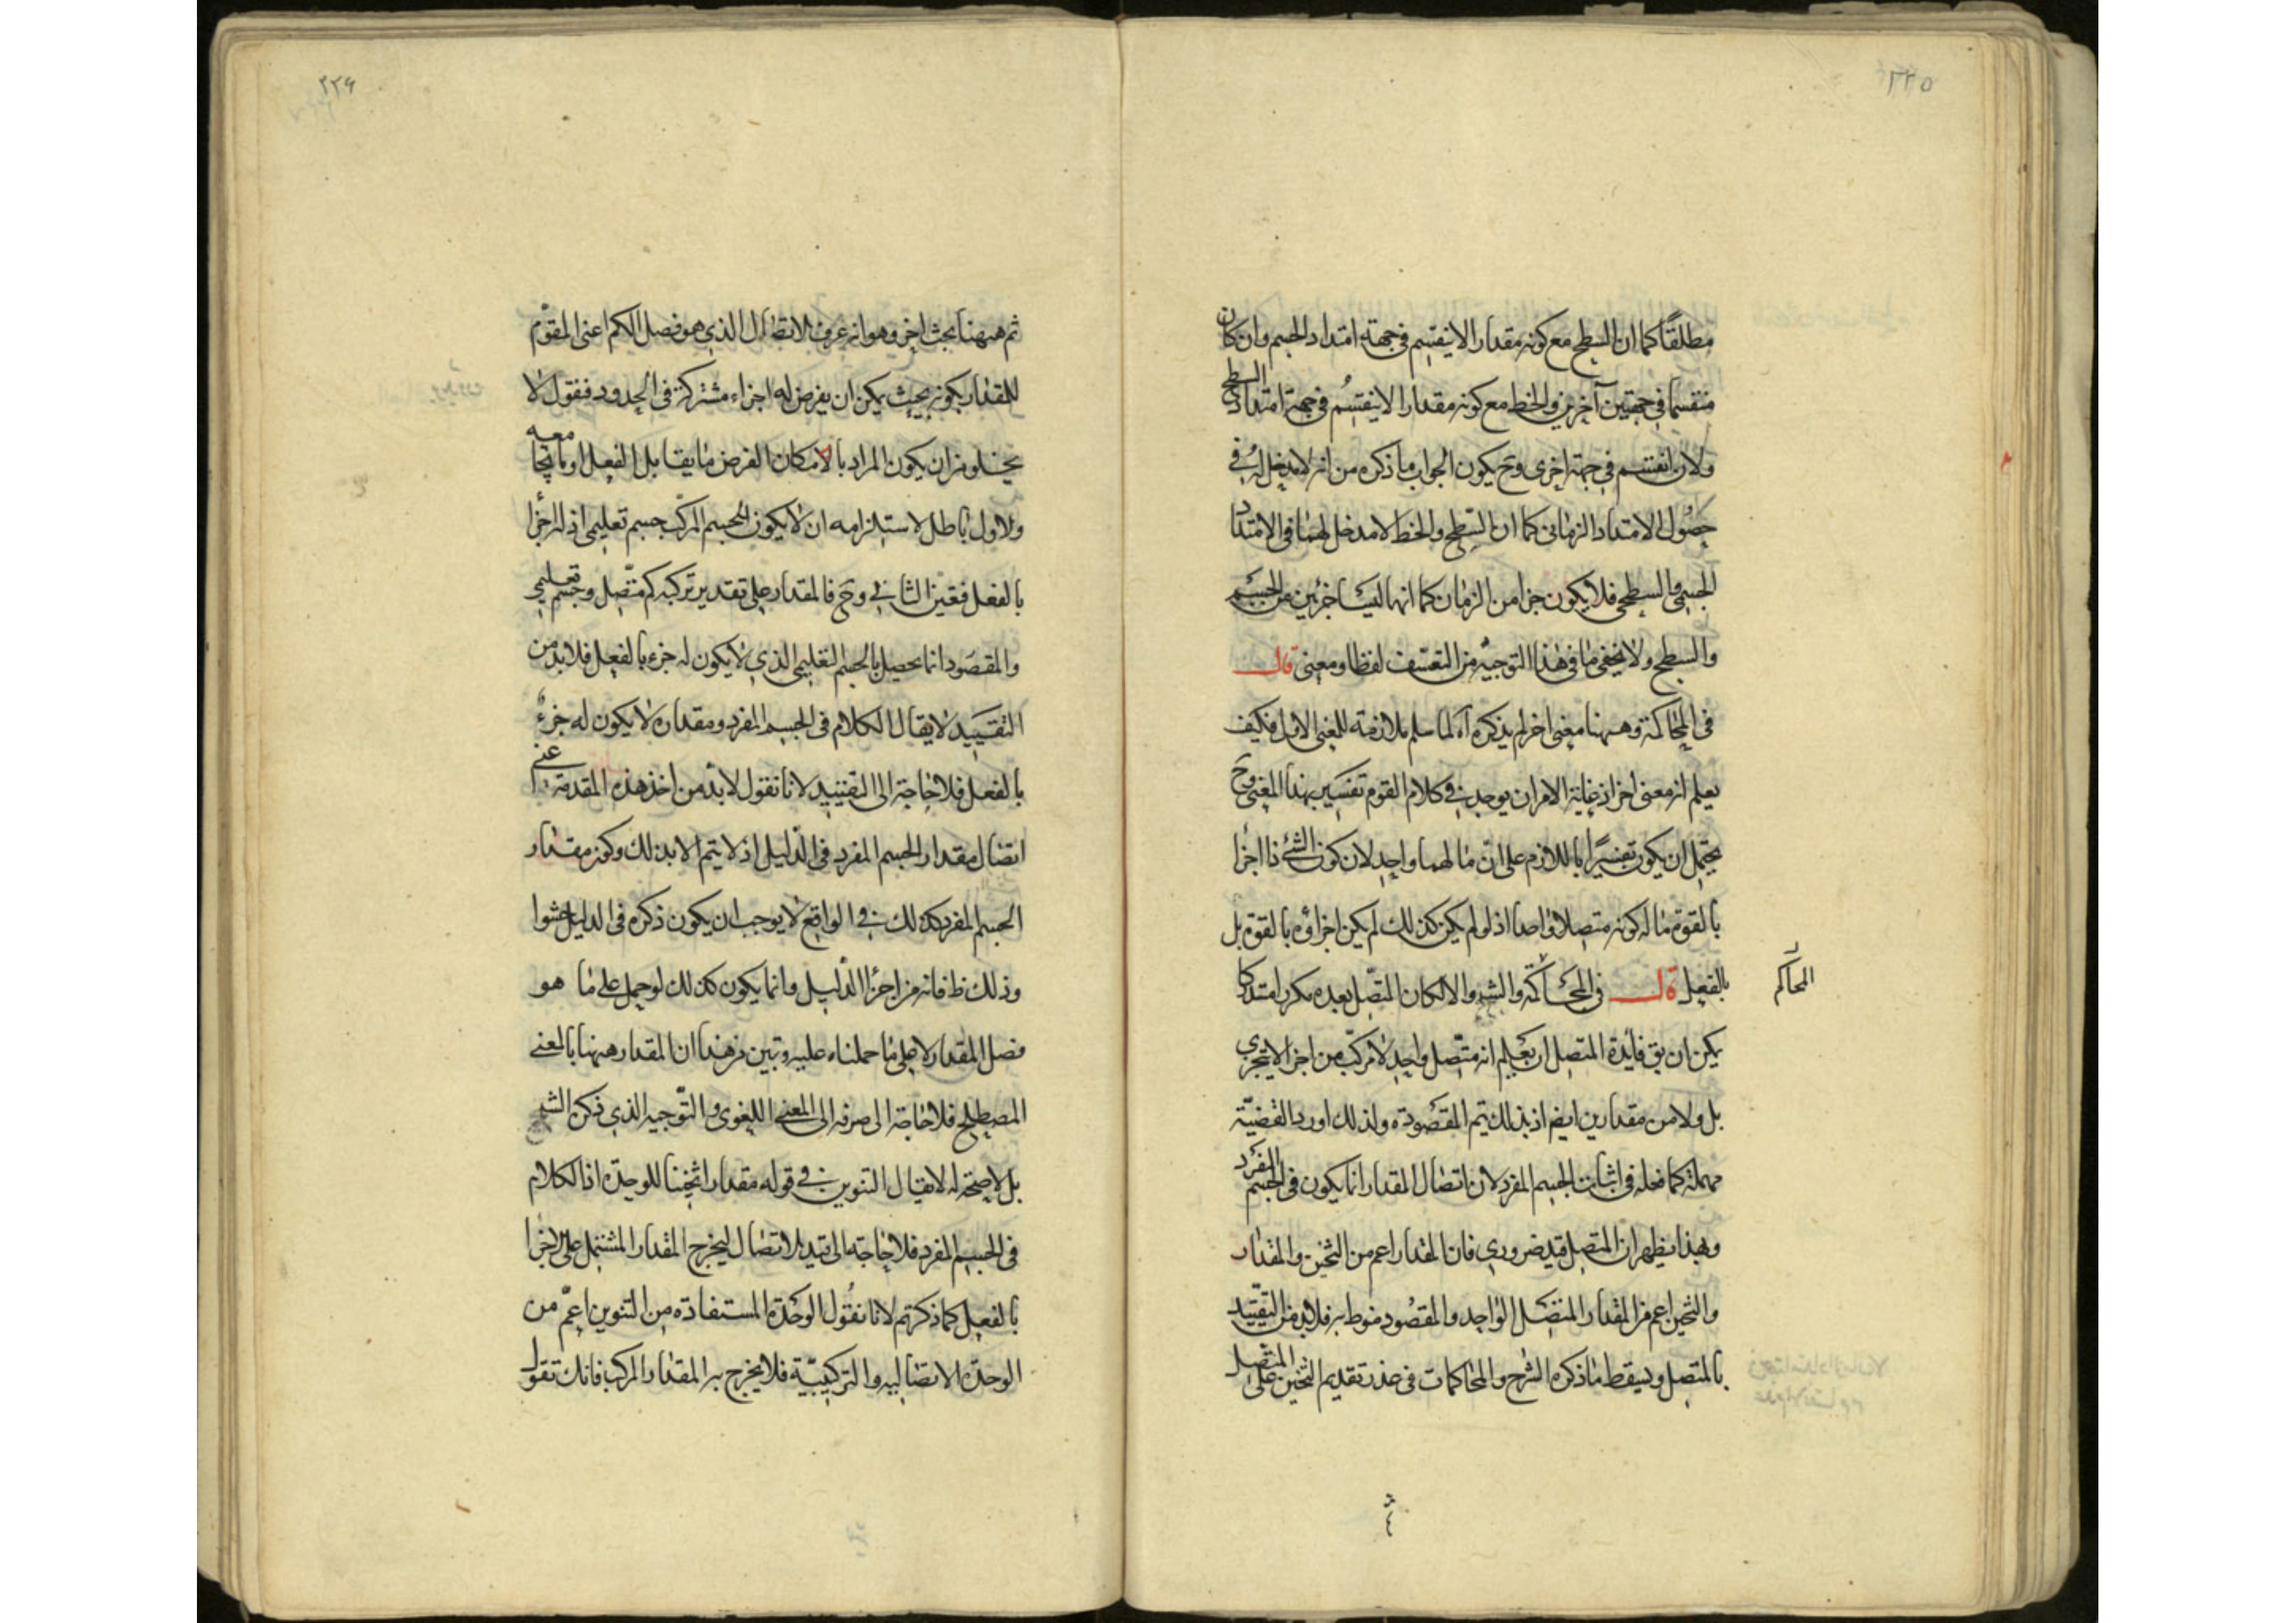 مطلقًا كما ان السطح مع كونه مقدارا لا ينقسم في جهته امتداد الجسم وان كان
منقسما في جهتين آخرين والخط مع كونه مقدارا لا ينقسم في جهة امتداد السطح
ولان انقسم في جهة اخرى وح يكون الجواب ما ذكره من انه لا مدخل له في
حصول الامتداد الزماني كما ان السطح والخط لا مدخل لهما في الامتداد
الجسمي والسطحي فلا يكون جزا من الزمان كما انهما ليسا جزئين من الجسم
والسطح ولا يخفى ما في هذا التوجيه من التعسف لفظا ومعنى قال
في المحاكمة وههنا معنى اخر لم يذكره آه لما سلم ملازمته للمعنى الاول فكيف
يعلم انه معنى اخر اذ غاية الامر ان يوجد في كلام القوم تفسير بهذا المعنى وح
يحتمل ان يكون تفسيرا باللازم على ان مالهما واحد لان كون الشئ ذا اجزا
بالقوة ماله كونه متصلا واحدا اذ لو لم يكن كذلك لم يكن اجزاؤه بالقوة بل
بالفعل قال في المحاكمة والشر والا لكان المتصل بعده مكررا مستدركا
المحاكم
يمكن ان يق فائدة المتصل ان يعلم انه متصل واحد لا مركب من اجزا لا يتجزى
بل ولا من مقدارين ايضا اذ بذلك يتم المقصود ولذلك اورد القضية
مهملة كما فعله في اثبات الجسم المفرد لان اتصال المقدار انما يكون في الجسم المفرد
وبهذا يظهر ان المتصل قيد ضروري فان المقدار اعم من الثخين والمقدار
والثخين اعم من المقدار المتصل الواحد والمقصود منوط به فلابد من التقييد
بالمتصل ويسقط ما ذكره الشرح والمحاكمات في عذر تقديم الثخين على المتصل
٢٢۶
ثم ههنا بحث اخر وهو انه عرف الاتصال الذي هو فصل الكم اعنى المقوم
للمقدار بكونه بحيث يمكن ان يفرض له اجزاء مشتركة في الحدود فنقول لا
يخلو من ان يكون المراد بالامكان الفرض ما يقابل الفعل او ما يجامعه
والاول باطل لاستلزامه ان لا يكون للجسم المركب جسم تعليمي اذ له اجزا
بالفعل فتعين الثاني وح فالمقدار على تقدير تركبه كم متصل وجسم تعليمي
والمقصود انما يحصل بالجسم التعليمي الذي لا يكون له جزء بالفعل فلابد من
التقييد لا يقال الكلام في الجسم المفرد ومقداره لا يكون له جزءٌ
بالفعل فلا حاجة الى التقييد لانا نقول لابد من اخذ هذه المقدمة اعنى
اتصال مقدار الجسم المفرد في الدليل اذ لا يتم الا بذلك وكون مقدار
الجسم المفرد كذلك في الواقع لا يوجب ان يكون ذكره في الدليل حشوا
وذلك ظ فانه من اجزا الدليل وانما يكون كذلك لو حمل على ما هو
فصل المقدار لا على ما حملناه عليه وتبين من هذا ان المقدار ههنا بالمعنى
المصطلح فلا حاجة الى صرفه الى المعنى اللغوي والتوجيه الذي ذكره الشر
بل لا صحة له لا يقال التنوين في قوله مقدارا ثخينا للوحدة اذ الكلام
في الجسم المفرد فلا حاجة الى قيد الاتصال ليخرج المقدار المشتمل على الاجزا
بالفعل كما ذكرتم لانا نقول الوحدة المستفادة من التنوين اعم من
الوحدة الاتصالية والتركيبية فلا يخرج به المقدار المركب فانك تقول